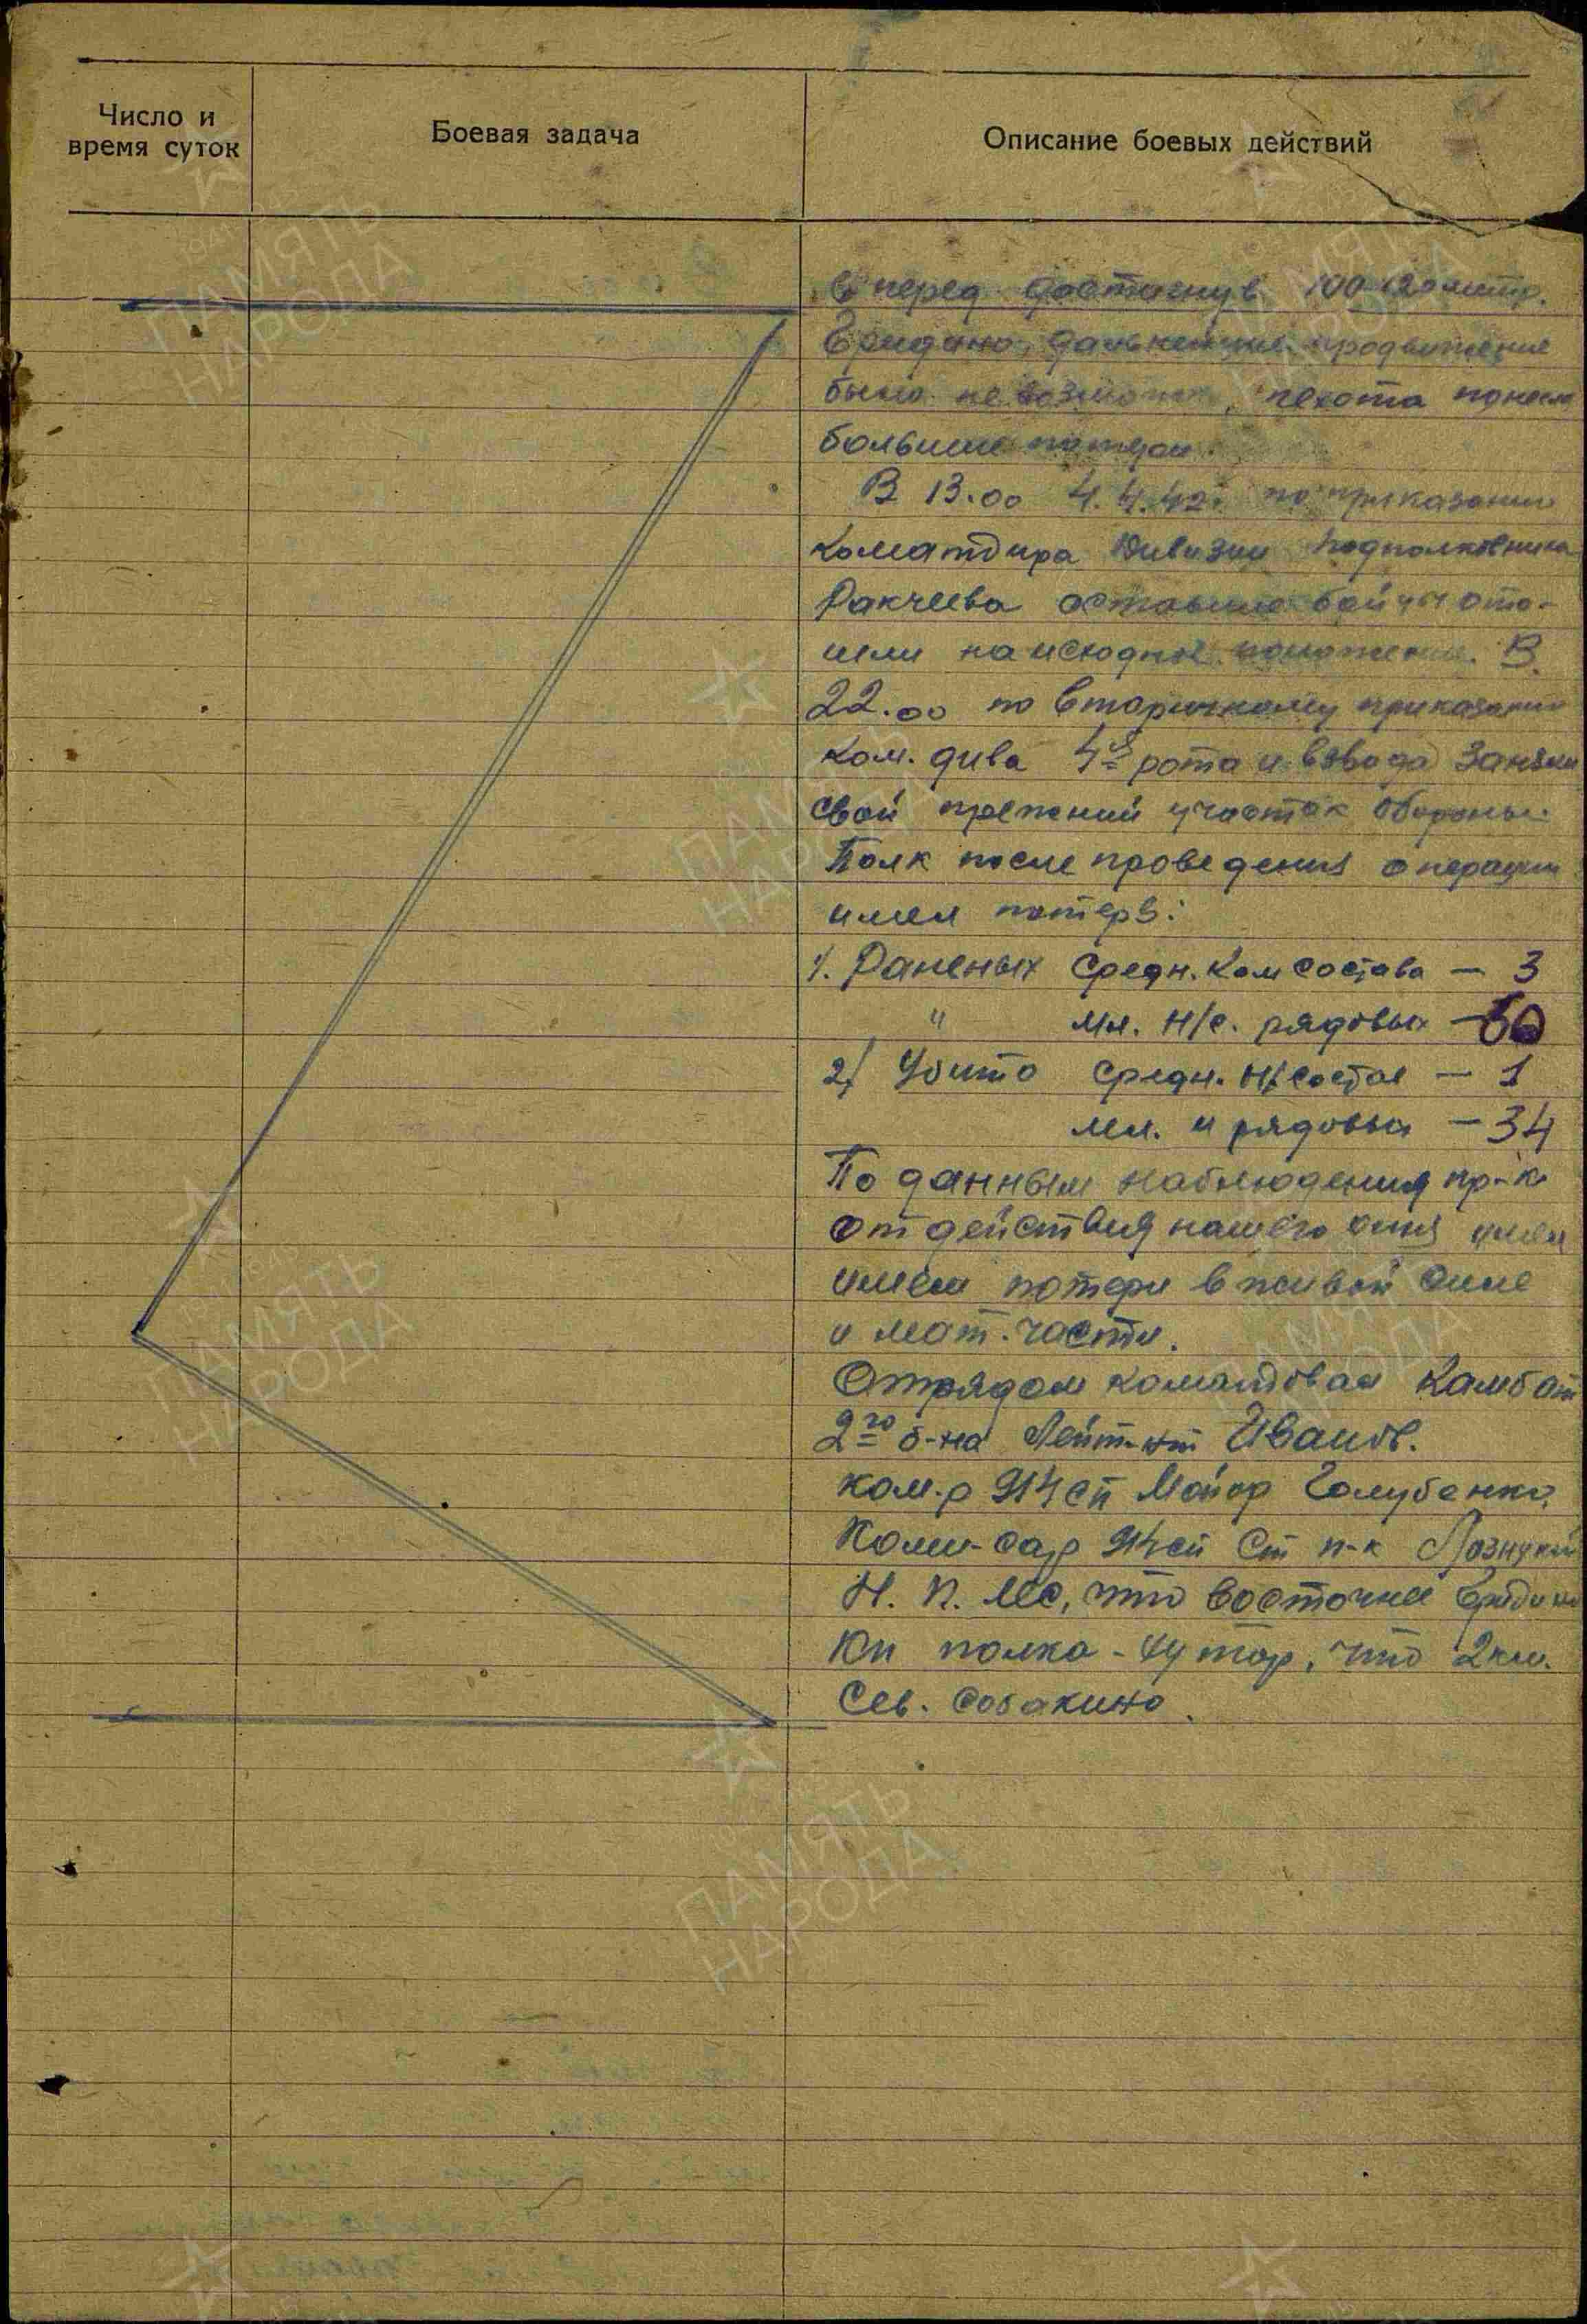 Число и
время суток
Боевая задача
Описание боевых действий
вперед достигнув 100-120 метр.
Бридино, дальнейшее продвижение
было не возможно, пехота понесла
большие потери.
В 13.00 4.4.42г. по приказанию
командира Дивизии подполковника
Ракчеева оставшие бойцы ото-
шли на исходное положение. В
22.00 по вторичному приказанию
ком. дива 4я рота и взвода заняли
свой прежний участок обороны.
Полк после проведения операции
имел потерь:
1. Раненых средн. комсостава — 3
" мл. н/с. рядовых —
2/ Убито средн. н/состав — 1
мл. и рядовых — 34
По данным наблюдения пр-к
от действия нашего огня имел
имел потери в живой силе
и мат. части.
Отрядом командовал комбат
2го б-на Лейт-нт Иванов.
ком-р 914 сп Майор Голубенко,
Коми-сар 914 сп Ст п-к
Н. П. лес, что восточнее Бридино
Кп полка - хутор, что 2 км.
Сев. Собакино.
ПАМЯТЬ
НАРОДА